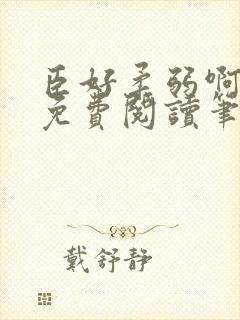 臣好柔弱啊
免費閱讀筆
戴舒静